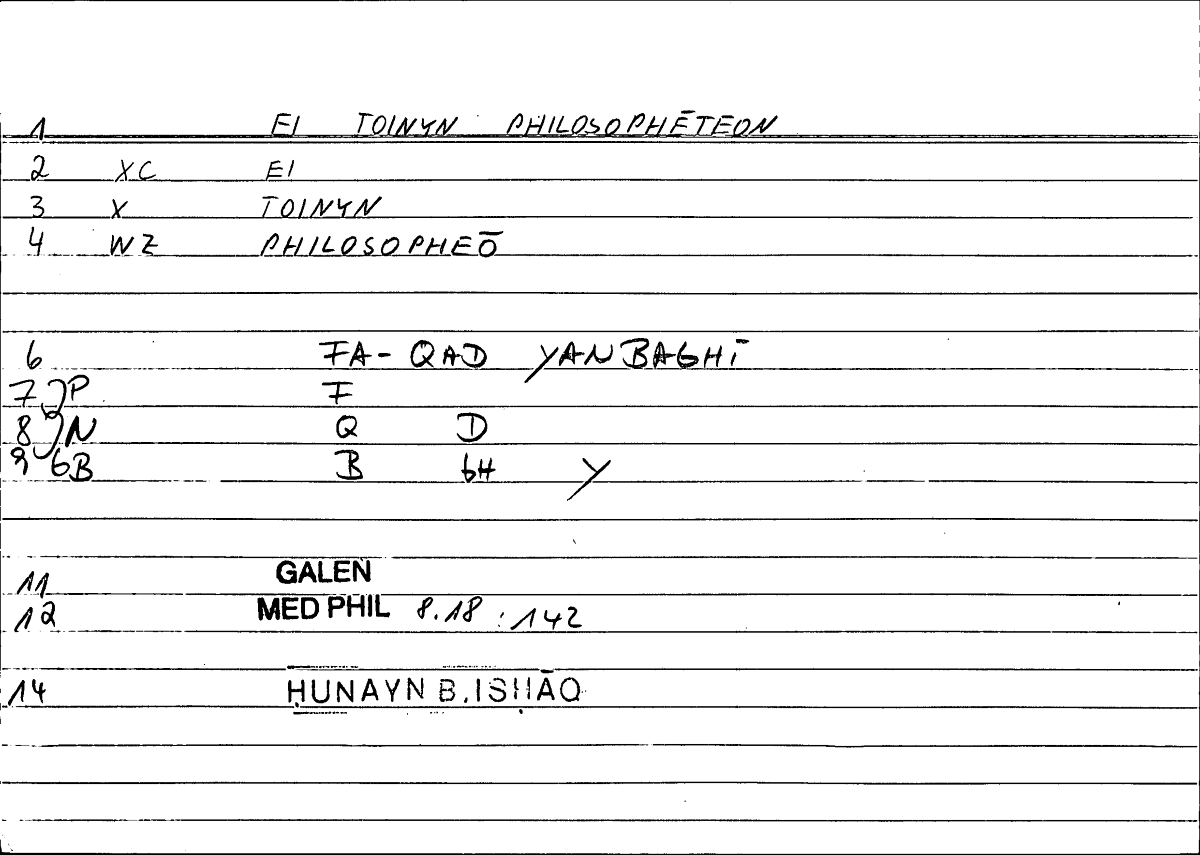 1 EI TOINYN PHILOSOPHĒTEON
2 XC EI
3 X TOINYN
4 WZ PHILOSOPHEŌ
6 FA-QAD YANBAGHĪ
7 P F
8 N Q D
9 GB B GH Y
11 GALEN
12 MED PHIL 8.18 : 142
14 ḤUNAYN B. ISḤĀQ